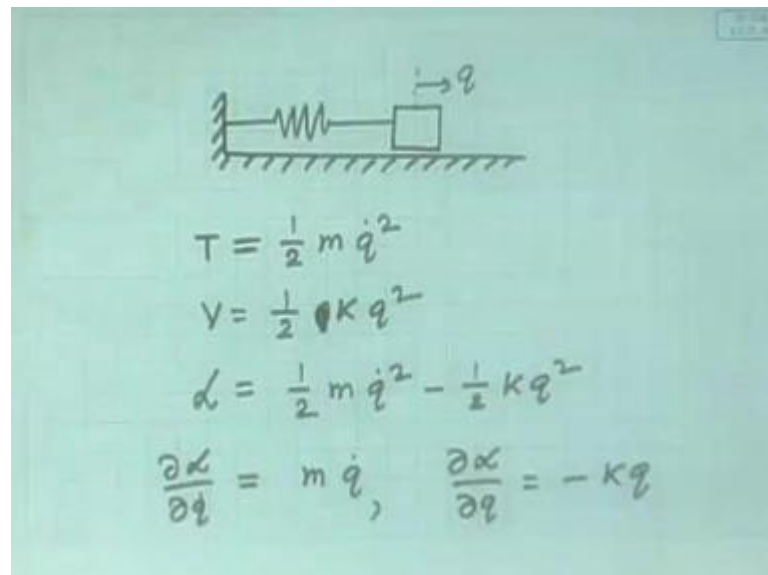 q
T = 1/2 m q̇²
V = 1/2 K q²
ℒ = 1/2 m q̇² - 1/2 K q²
∂ℒ/∂q̇ = m q̇, ∂ℒ/∂q = - K q